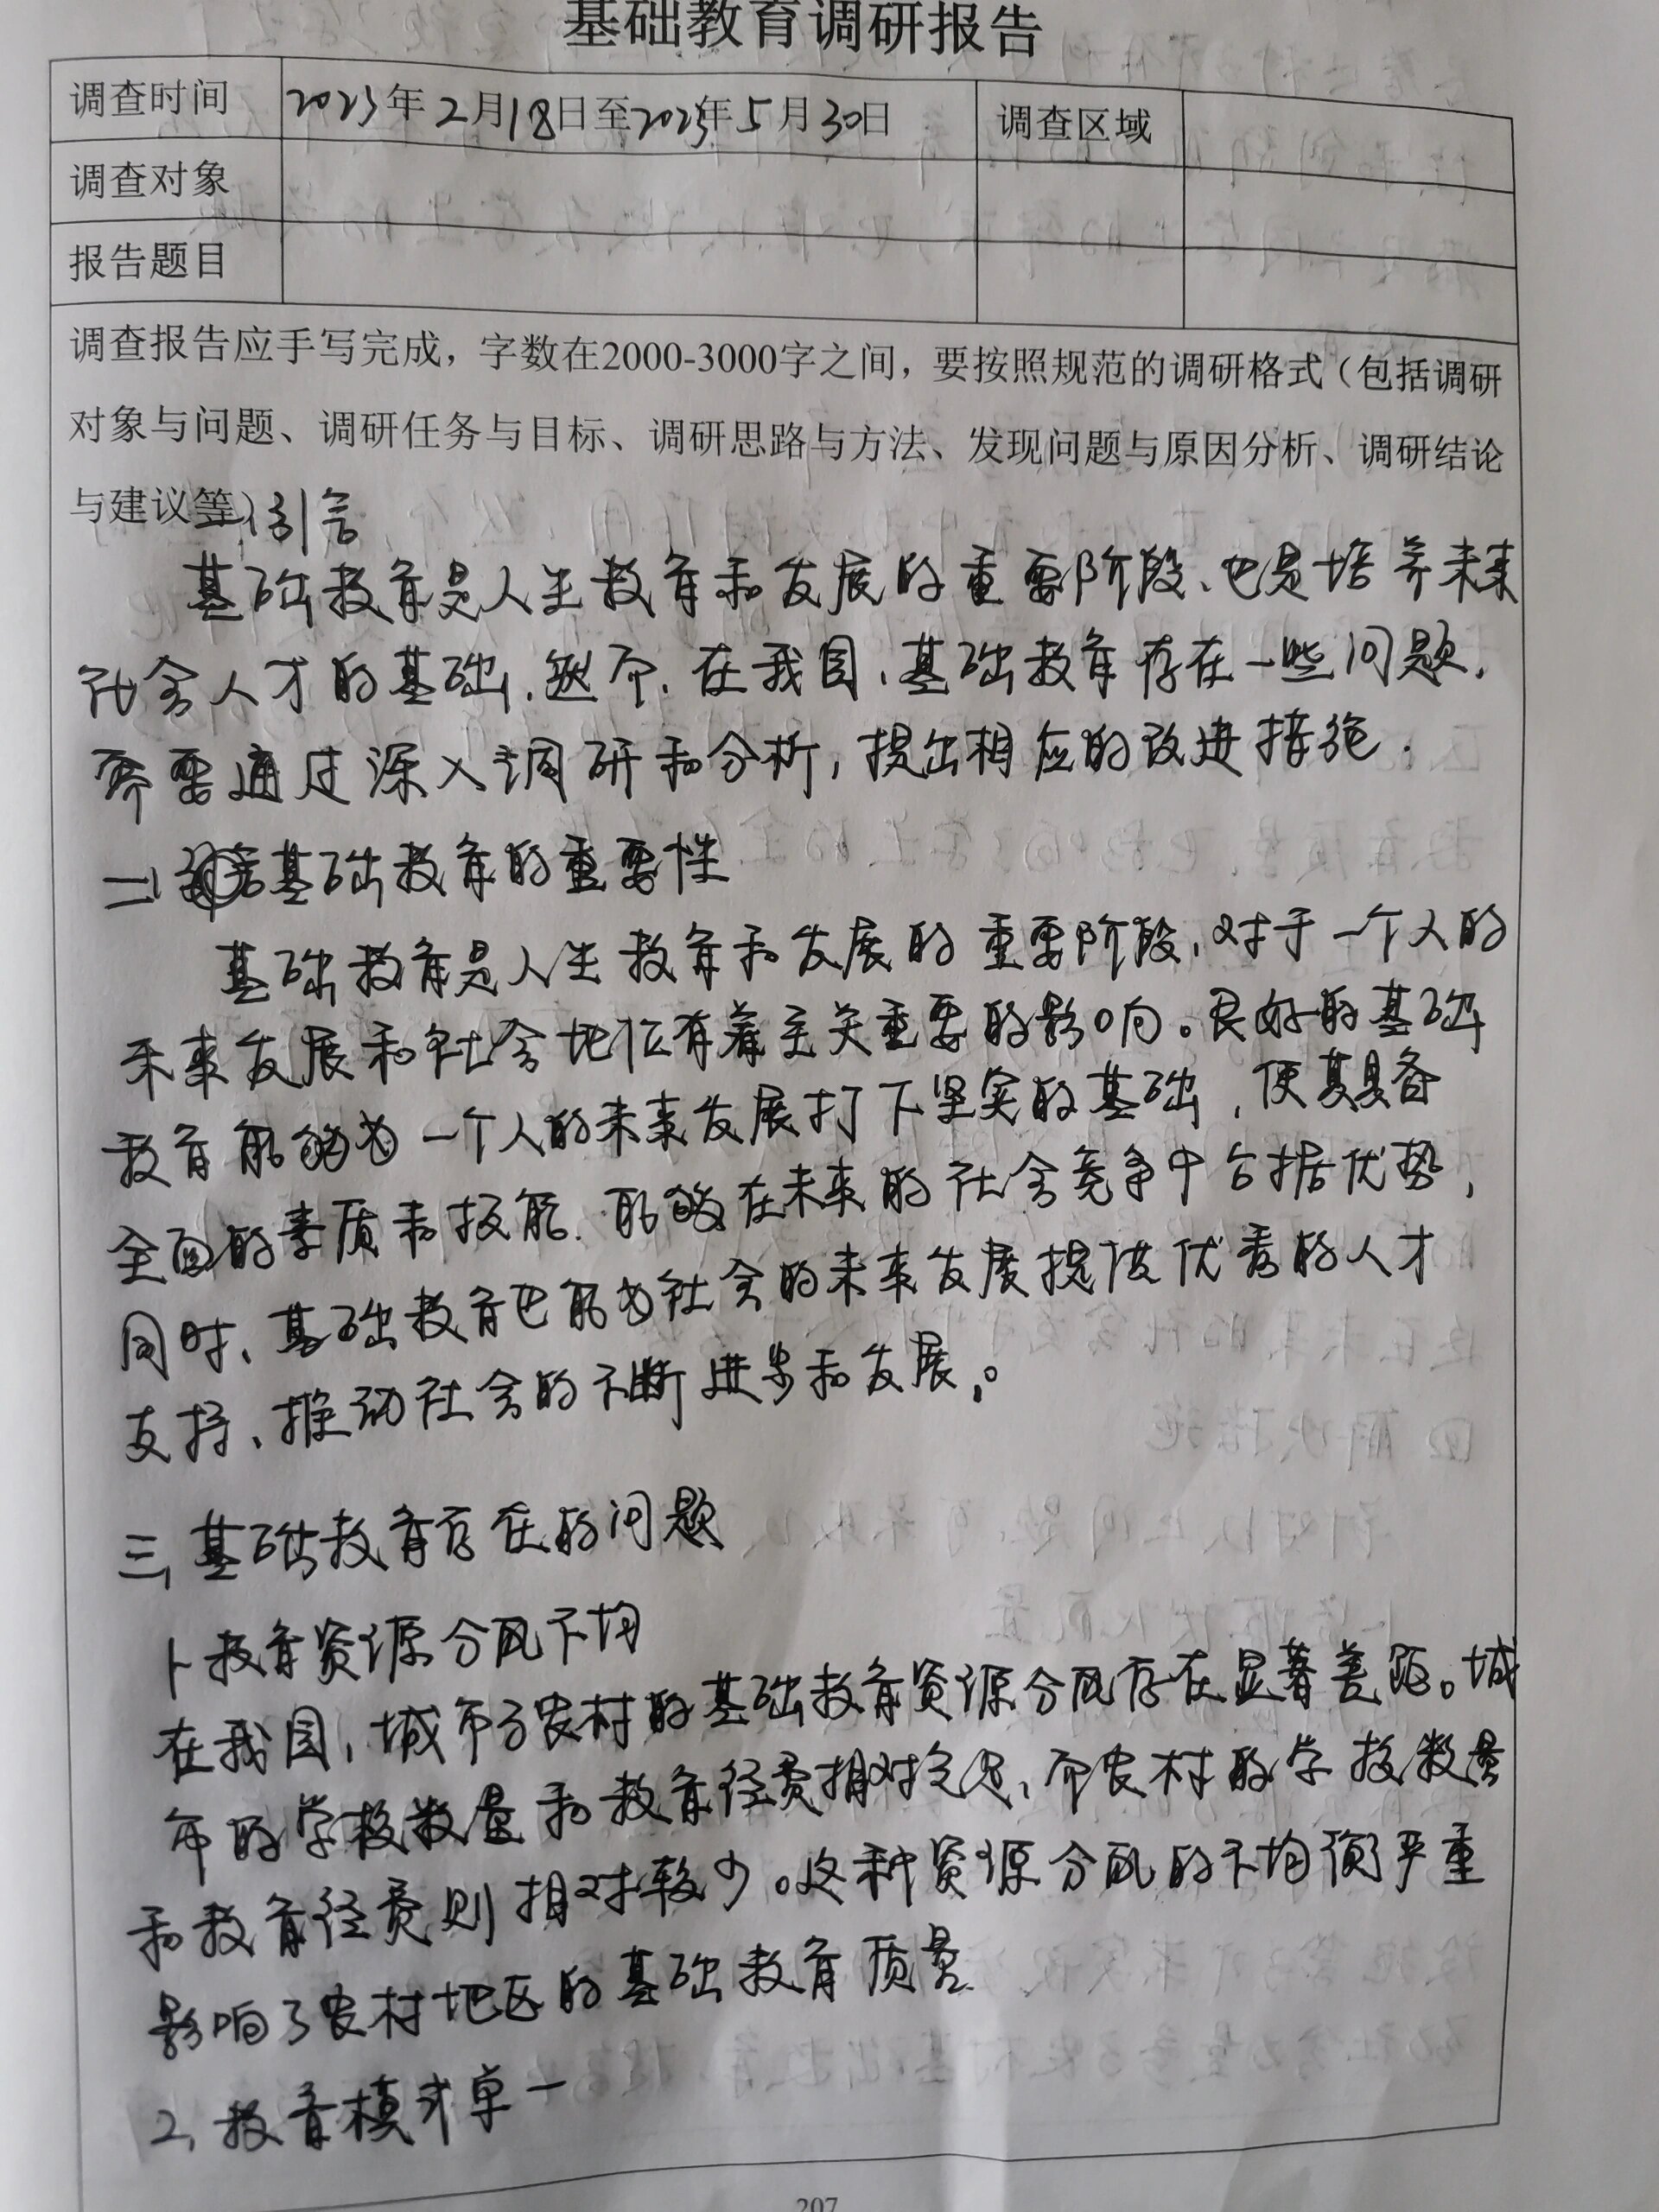 基础教育调研报告
调查时间 2023年2月18日至2023年5月30日 调查区域
调查对象
报告题目
调查报告应手写完成，字数在2000-3000字之间，要按照规范的调研格式（包括调研
对象与问题、调研任务与目标、调研思路与方法、发现问题与原因分析、调研结论
与建议等）
一、引言
基础教育是人生教育和发展的重要阶段、也是培养未来
社会人才的基础、然而、在我国、基础教育存在一些问题，
需要通过深入调研和分析，提出相应的改进措施．
二、基础教育的重要性
基础教育是人生教育和发展的重要阶段，对于一个人的
未来发展和社会地位有着至关重要的影响。良好的基础
教育能够为一个人的未来发展打下坚实的基础，使其具备
全面的素质和技能．能够在未来的社会竞争中占据优势，
同时、基础教育也能为社会的未来发展提供优秀的人才
支持、推动社会的不断进步和发展。
三、基础教育存在的问题
1、教育资源分配不均
在我国，城市与农村的基础教育资源分配存在显著差距。城
市的学校数量和教育经费相对充足、而农村的学校数量
和教育经费则相对较少。这种资源分配的不均衡严重
影响了农村地区的基础教育质量
2、教育模式单一
207